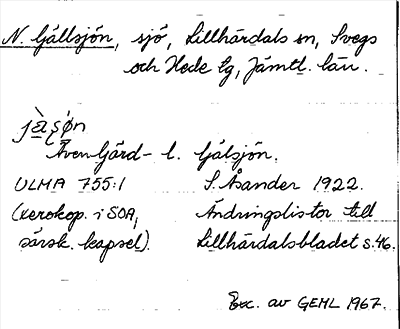 N. Gällsjön, sjö, Lillhärdals sn, Svegs
och Hede tg, Jämtl. län.
Även Gärd- l. Gälsjön.
ULMA 755:1 S. Åsander 1922.
(xerokop. i SOA, Ändringslistor till
särsk. kapsel). Lillhärdalsbladet s. 46.
Exc. av GEHL 1967.